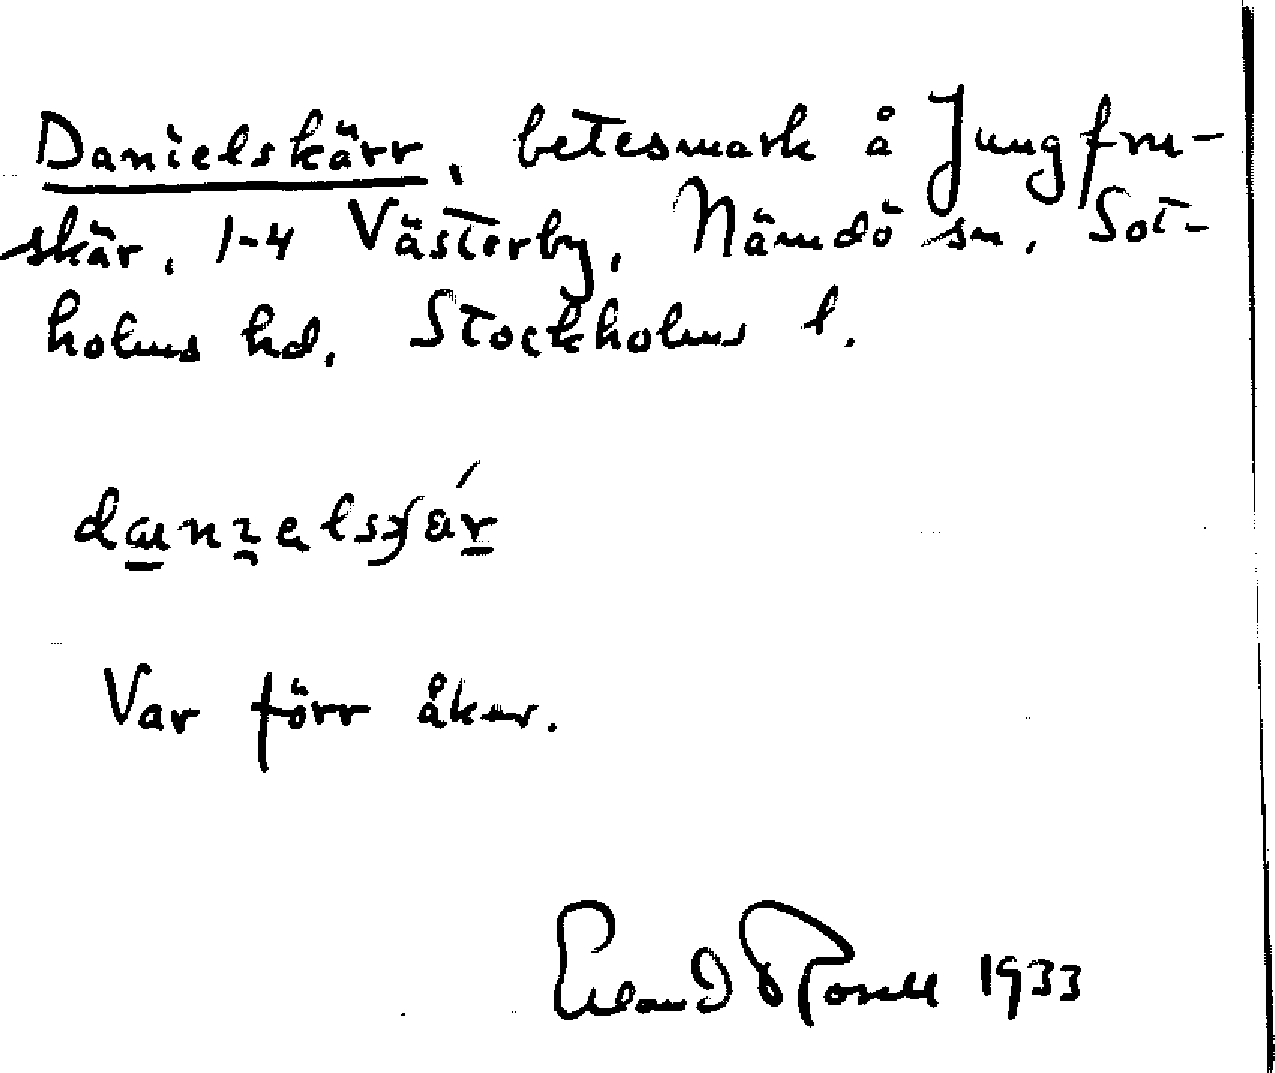 Danielskärr, betesmark å Jungfru-
skär, 1-4 Västerby, Nämdö sn, Sot-
holms hd, Stockholms l.
Var förr åker.
Erland Rosell 1933